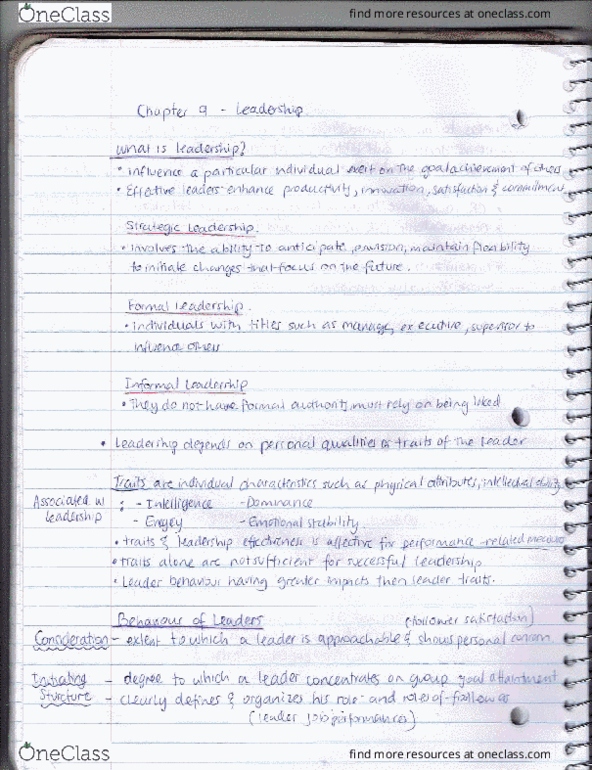 OneClass
find more resources at oneclass.com
Chapter 9 - Leadership
What is leadership?
• influence a particular individual exert on the goal achievement of others
• Effective leaders enhance productivity, innovation, satisfaction & commitment
Strategic Leadership.
• involves the ability to anticipate, envision, maintain flexibility
to initiate changes that focus on the future.
Formal Leadership.
• individuals with titles such as manager, executive, supervisor to
influence others
Informal Leadership
• They do not have formal authority must rely on being liked
• Leadership depends on personal qualities or traits of the leader
Traits are individual characteristics such as physical attributes, intellectual ability
Associated w/ Leadership : - Intelligence - Dominance
- Energy - Emotional stability.
• traits & leadership effectiveness is affective for performance-related measures
• traits alone are not sufficient for successful leadership
• Leader behaviour having greater impacts then leader traits.
Behaviour of Leaders (follower satisfaction)
Consideration - extent to which a leader is approachable & shows personal concern
Initiating - degree to which a leader concentrates on group goal attainment
Sturcture - clearly defines & organizes his role and roles of followers
(leader job performances)
OneClass
find more resources at oneclass.com